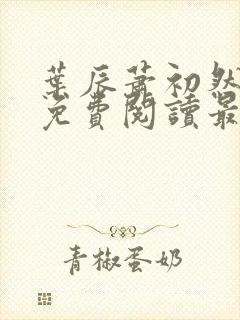 葉辰蕭初然
免費閱讀最
青椒蛋奶